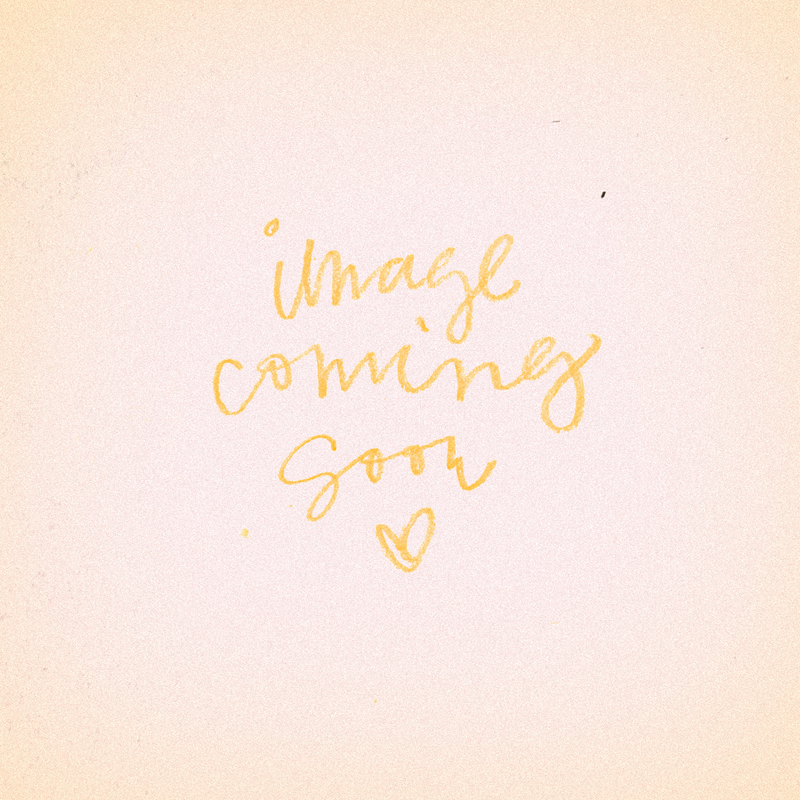 image
coming
soon